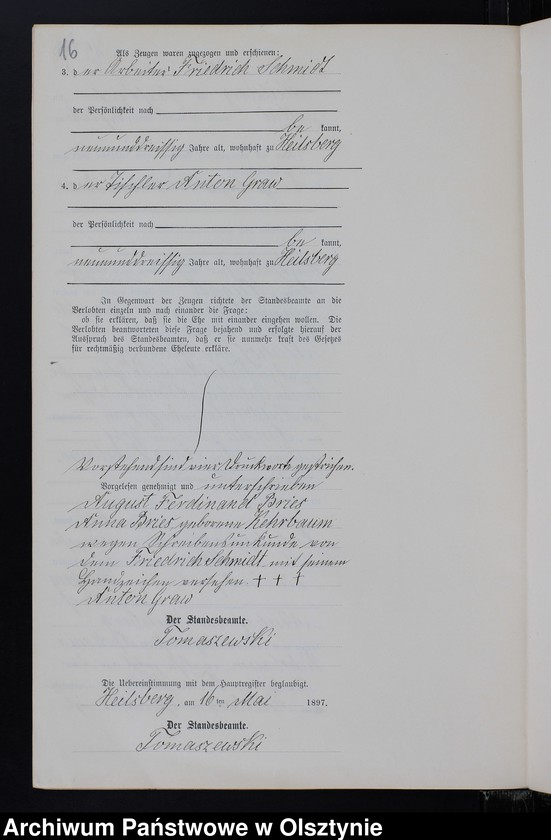 16
Als Zeugen waren zugezogen und erschienen:
3. der Arbeiter Friedrich Schmidt
der Persönlichkeit nach
be kannt,
neununddreissig Jahre alt, wohnhaft zu Heilsberg
4. der Tischler Anton Graw
der Persönlichkeit nach
be kannt,
neununddreissig Jahre alt, wohnhaft zu Heilsberg
In Gegenwart der Zeugen richtete der Standesbeamte an die
Verlobten einzeln und nach einander die Frage:
ob sie erklären, daß sie die Ehe mit einander eingehen wollen. Die
Verlobten beantworteten diese Frage bejahend und erfolgte hierauf der
Ausspruch des Standesbeamten, daß er sie nunmehr kraft des Gesetzes
für rechtmäßig verbundene Eheleute erkläre.
Vorstehend sind vier Druckworte gestrichen.
Vorgelesen genehmigt und unterschrieben
August Ferdinand Bries
Anna Bries, geborene Kehrbaum
wegen Schreibensunkunde von
dem Friedrich Schmidt mit seinem
Handzeichen versehen. + + +
Anton Graw
Der Standesbeamte.
Tomaszewski
Die Uebereinstimmung mit dem Hauptregister beglaubigt.
Heilsberg, am 16ten Mai 1897.
Der Standesbeamte.
Tomaszewski
Archiwum Państwowe w Olsztynie